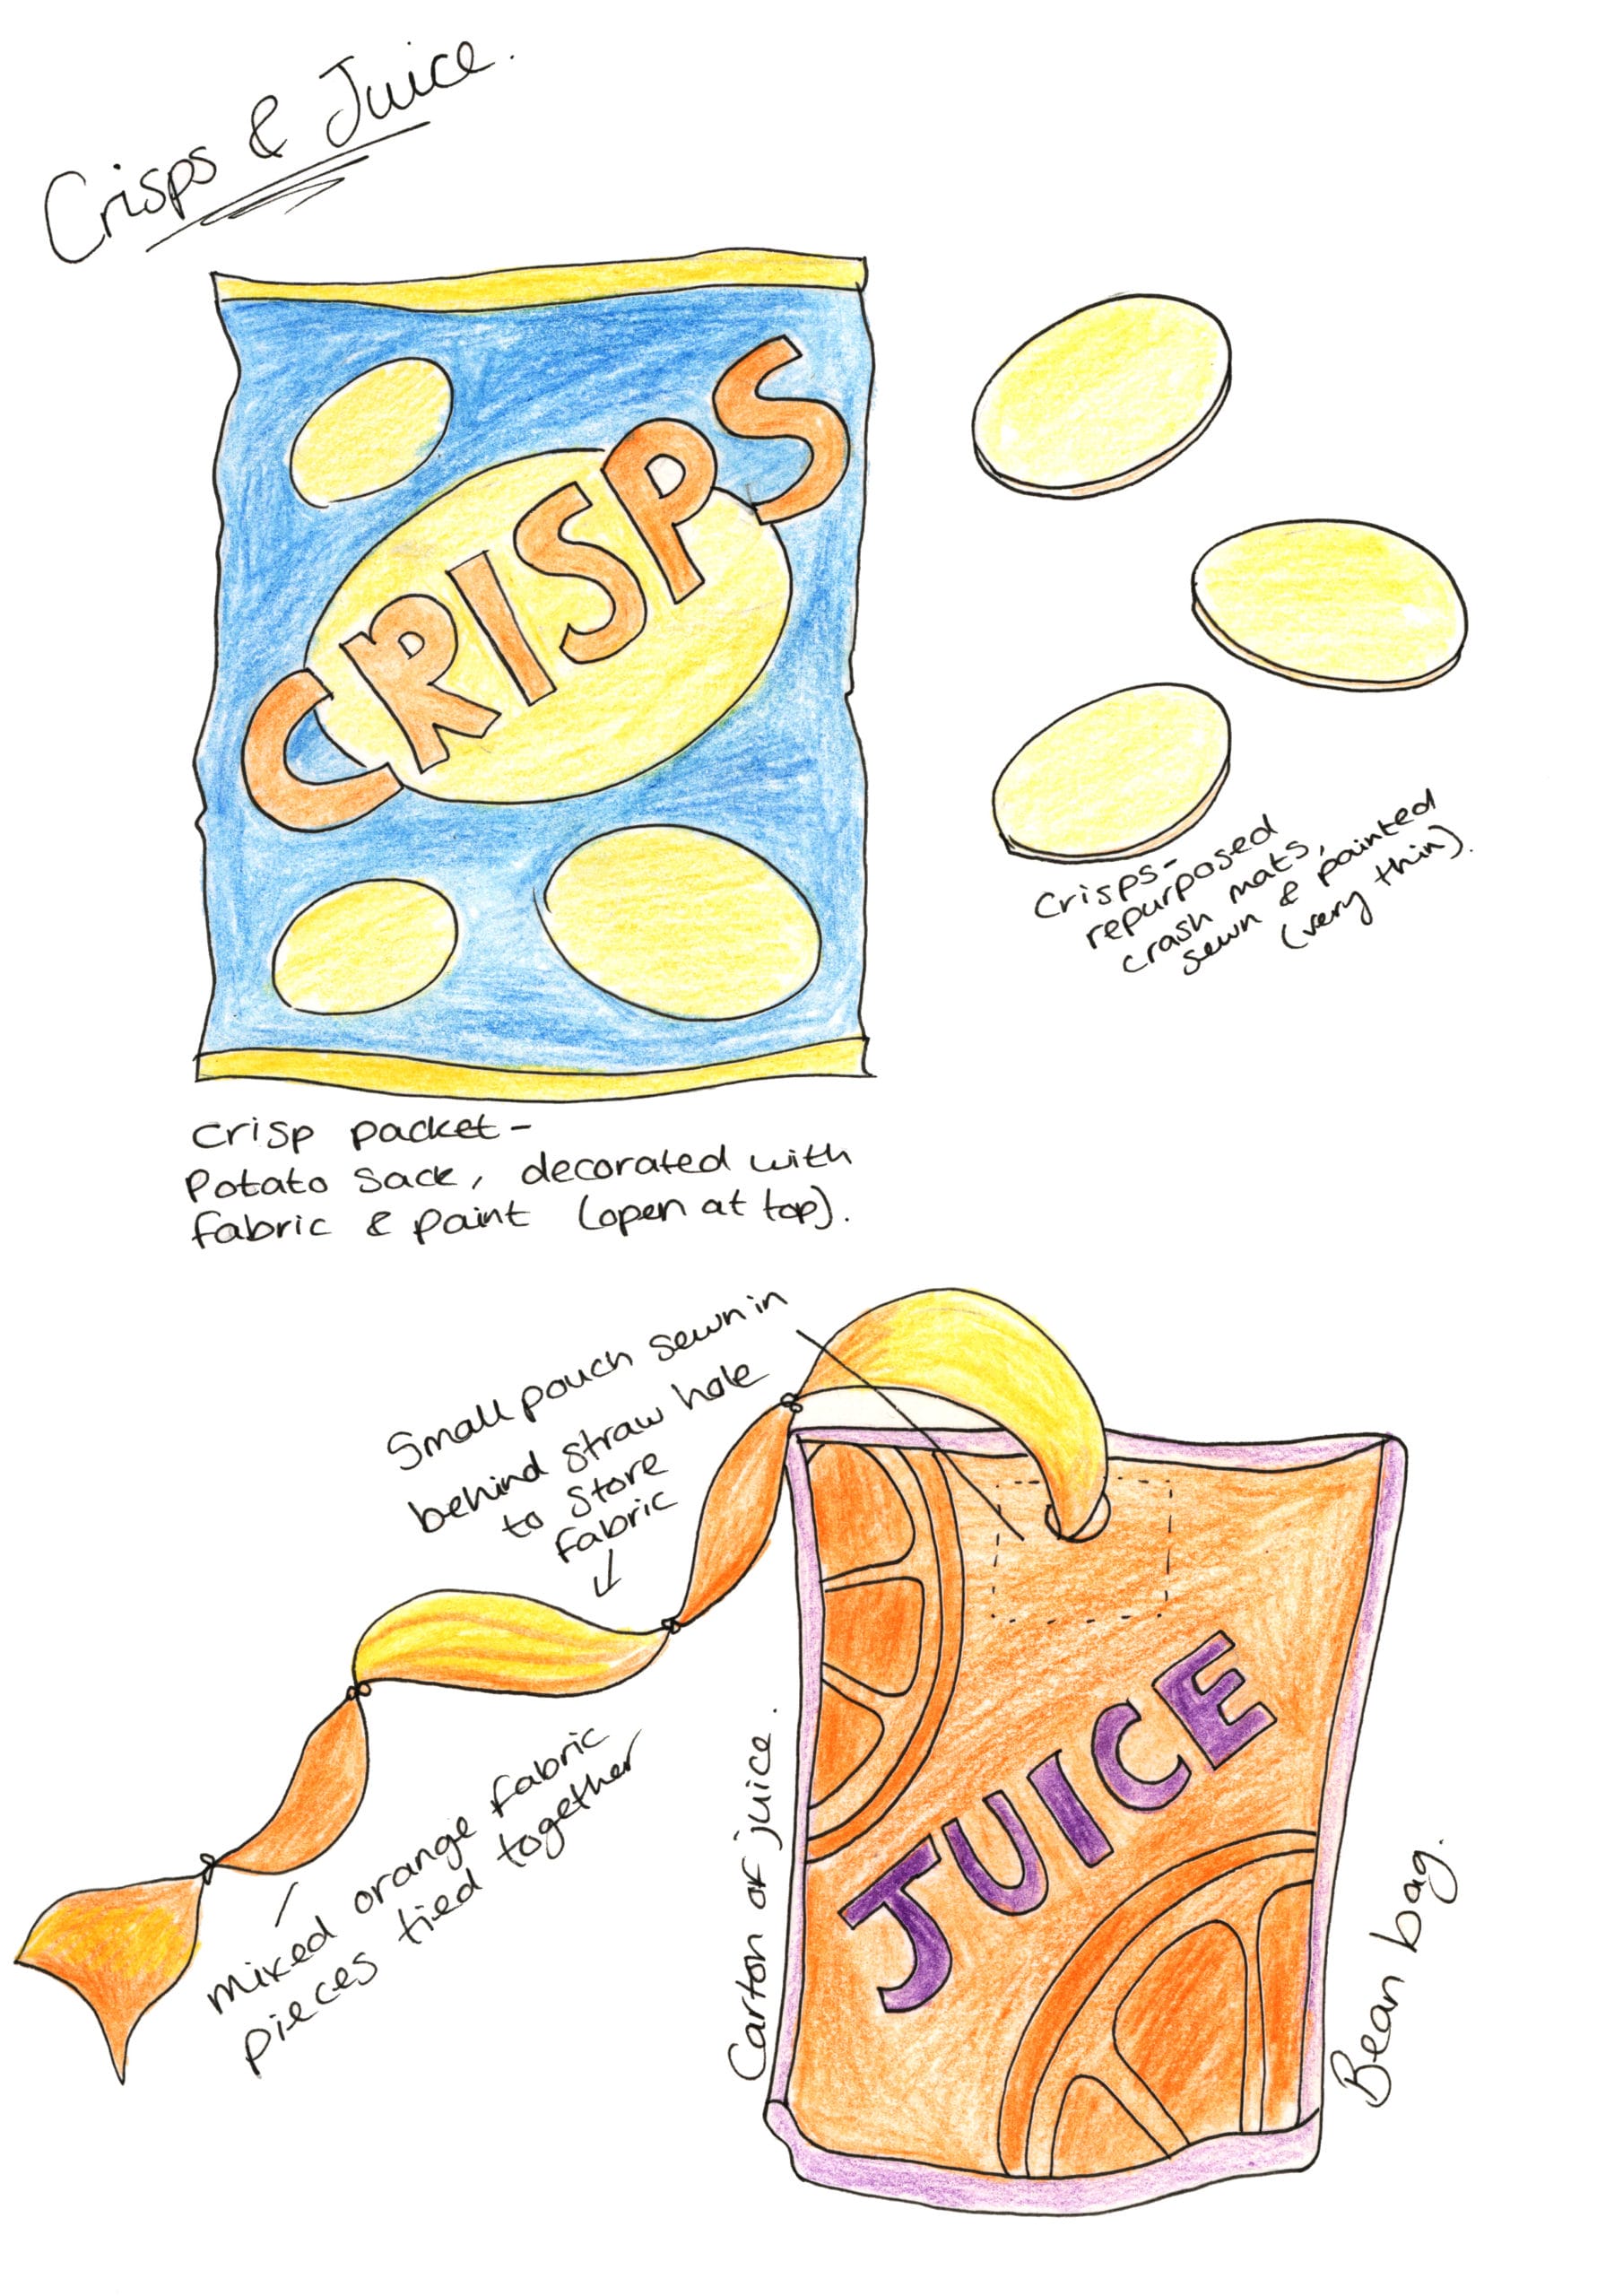 Crisps & Juice.
CRISPS
Crisps-
repurposed
crash mats,
sewn & painted
(very thin).
Crisp packet-
Potato sack, decorated with
fabric & paint (open at top).
Small pouch sewn in
behind straw hole
to store
fabric
mixed orange fabric
pieces tied together
Carton of juice.
JUICE
Bean bag.